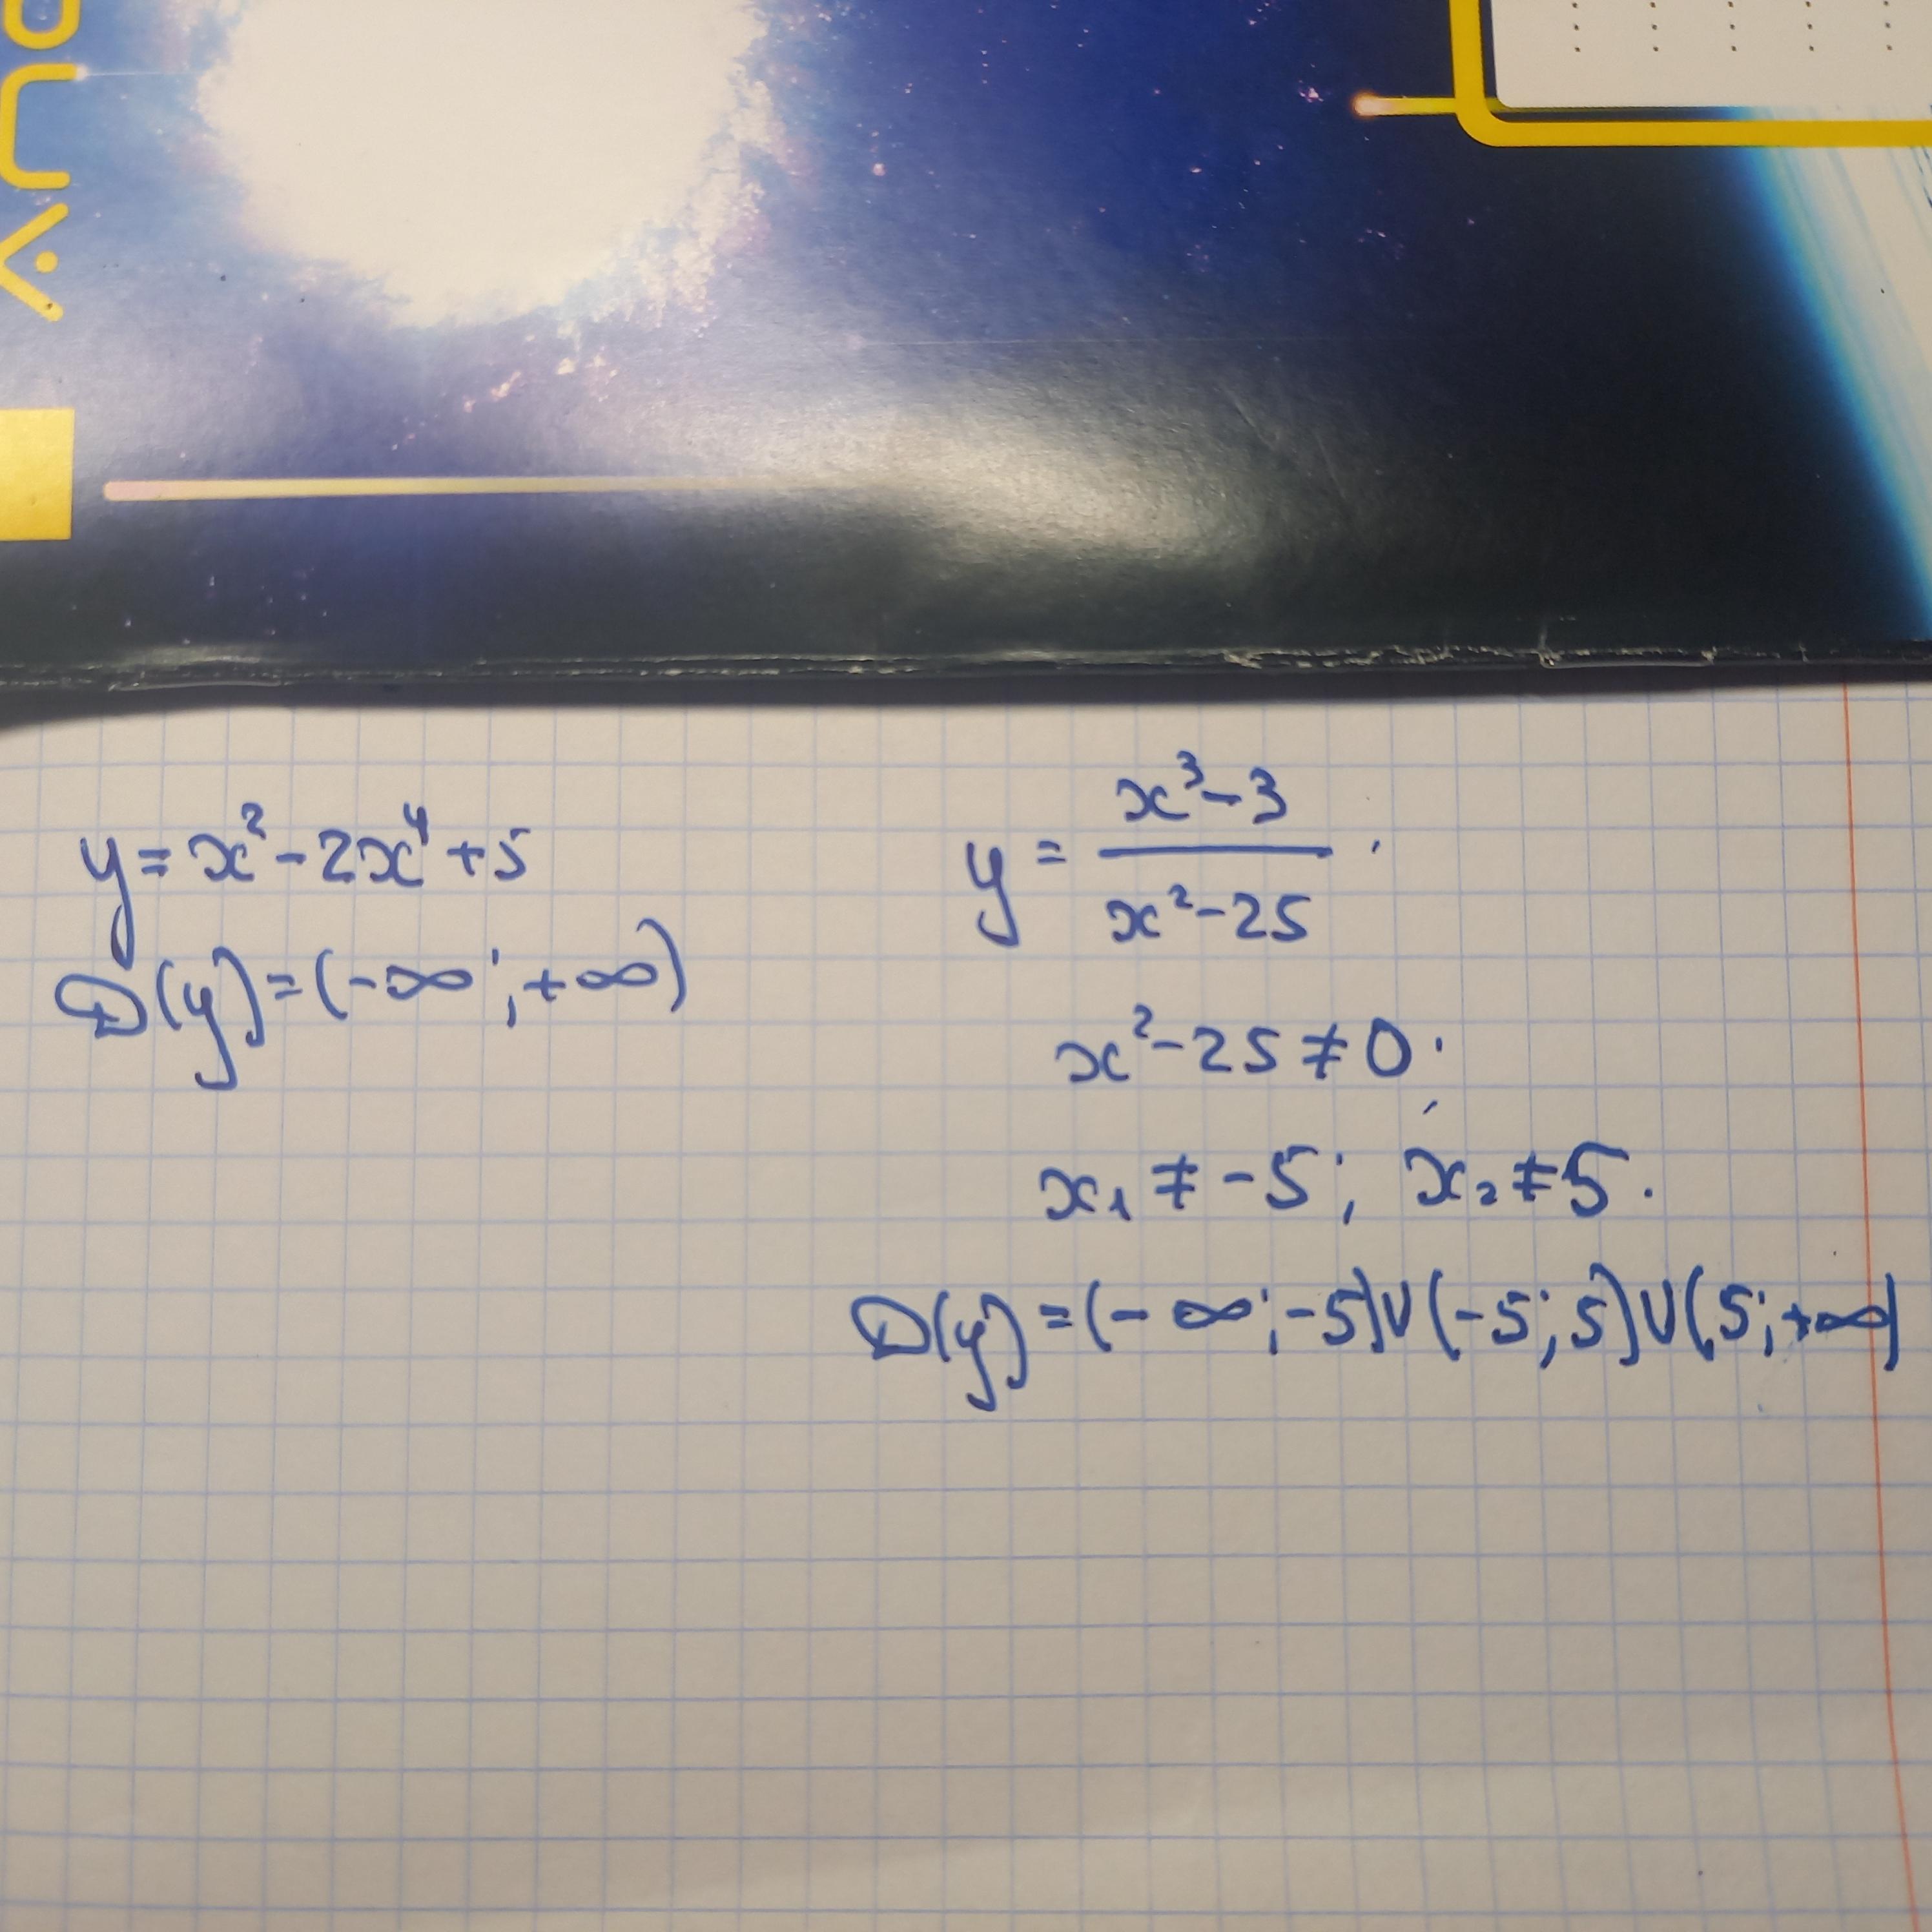 y = x² - 2x⁴ + 5
D(y) = (-∞; +∞)
y = (x³ - 3) / (x² - 25) .
x² - 25 ≠ 0.
x₁ ≠ -5; x₂ ≠ 5.
D(y) = (-∞; -5) ∪ (-5; 5) ∪ (5; +∞)